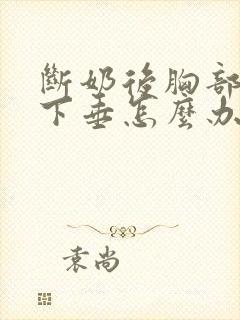 斷奶後胸部
下垂怎麼办
袁尚